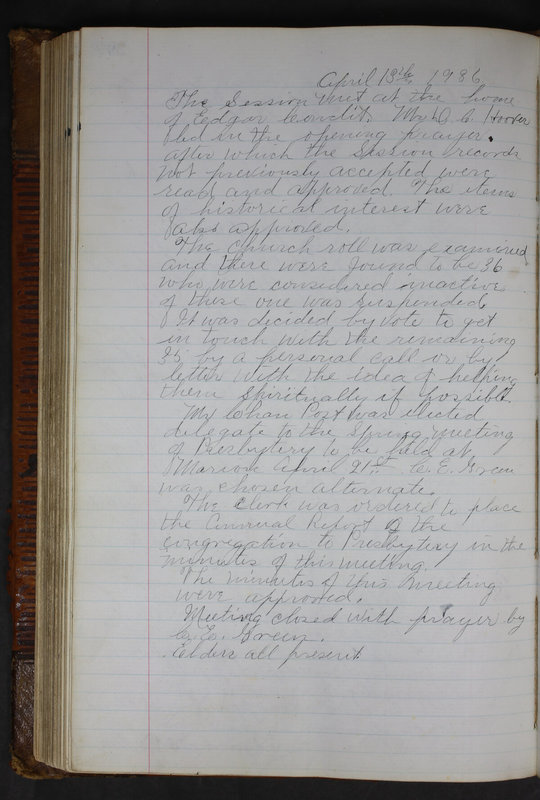 April 13th, 1936
The Session met at the home
of Edgar Condit. Mr D. C. Hoover
led in the opening prayer.
after which the Session records
not previously accepted were
read and approved. The items
of historical interest were
also approved.
The Church roll was examined
and there were found to be 36
who were considered inactive
of these one was suspended
It was decided by vote to get
in touch with the remaining
35 by a personal call or by
letter with the idea of helping
them spiritually if possible.
Mr Chan Post was elected
delegate to the Spring meeting
of Presbytery to be held at
Marion April 21st C. E. Green
was chosen alternate.
The Clerk was ordered to place
the Annual Report of the
congregation to Presbytery in the
minutes of this meeting.
The minutes of this meeting
were approved.
Meeting closed with prayer by
C. E. Green.
Elders all present